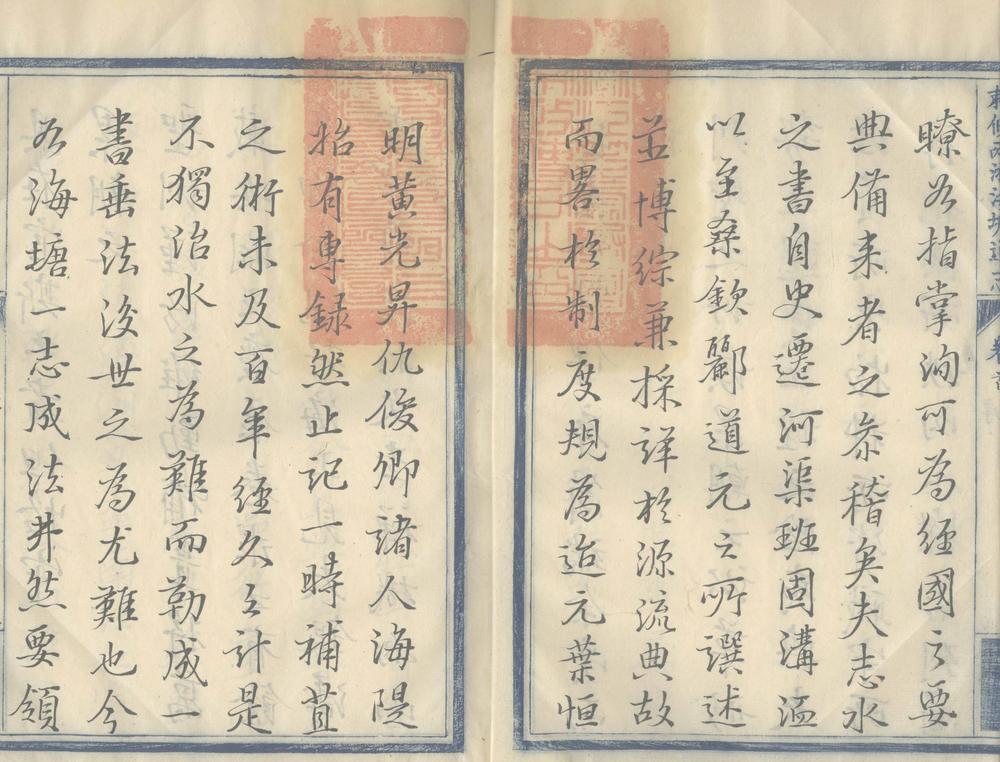 敕修兩浙海塘通志
卷首
瞭如指掌洵可為經國之要
典備來者之叅稽矣夫志水
之書自史遷河渠班固溝洫
以至桑欽酈道元之所譔述
並博綜兼採詳於源流典故
而畧於制度規為迨元葉恒
明黄光昇仇俊卿諸人海隄
始有專録然止記一時補苴
之術未及百年經久之計是
不獨治水之為難而勒成一
書垂法後世之為尤難也今
如海塘一志成法井然要領